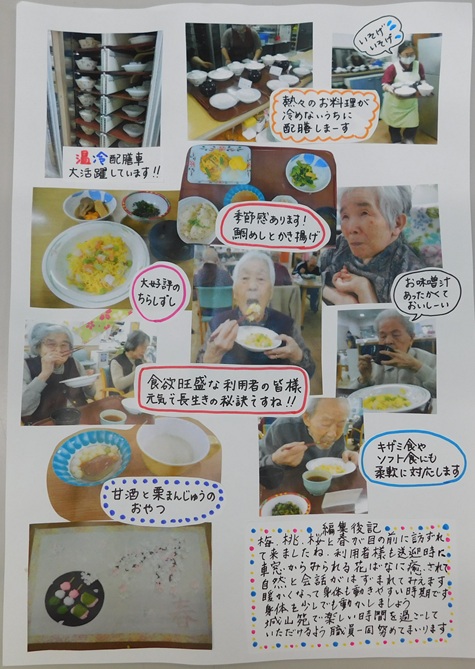 いそげ
いそげ
熱々のお料理が
冷めないうちに
配膳しまーす
温冷配膳車
大活躍しています!!
季節感あります!
鯛めしとかき揚げ
大好評の
ちらしずし
お味噌汁
あったかくて
おいしーい
食欲旺盛な利用者の皆様
元気で長生きの秘訣ですね!!
キザミ食や
ソフト食にも
柔軟に対応します
甘酒と栗まんじゅうの
おやつ
春
編集後記
梅、桃、桜と春が目の前に訪ずれ
て来ましたね。利用者様も送迎時に
車窓からみられる花ばなに癒されて
自然と会話がはずまれてみえます
暖かくなって身体も動きやすい時期です
身体を少しでも動かしましょう
城山苑で楽しい時間を過ごして
いただけるよう職員一同努めてまいります